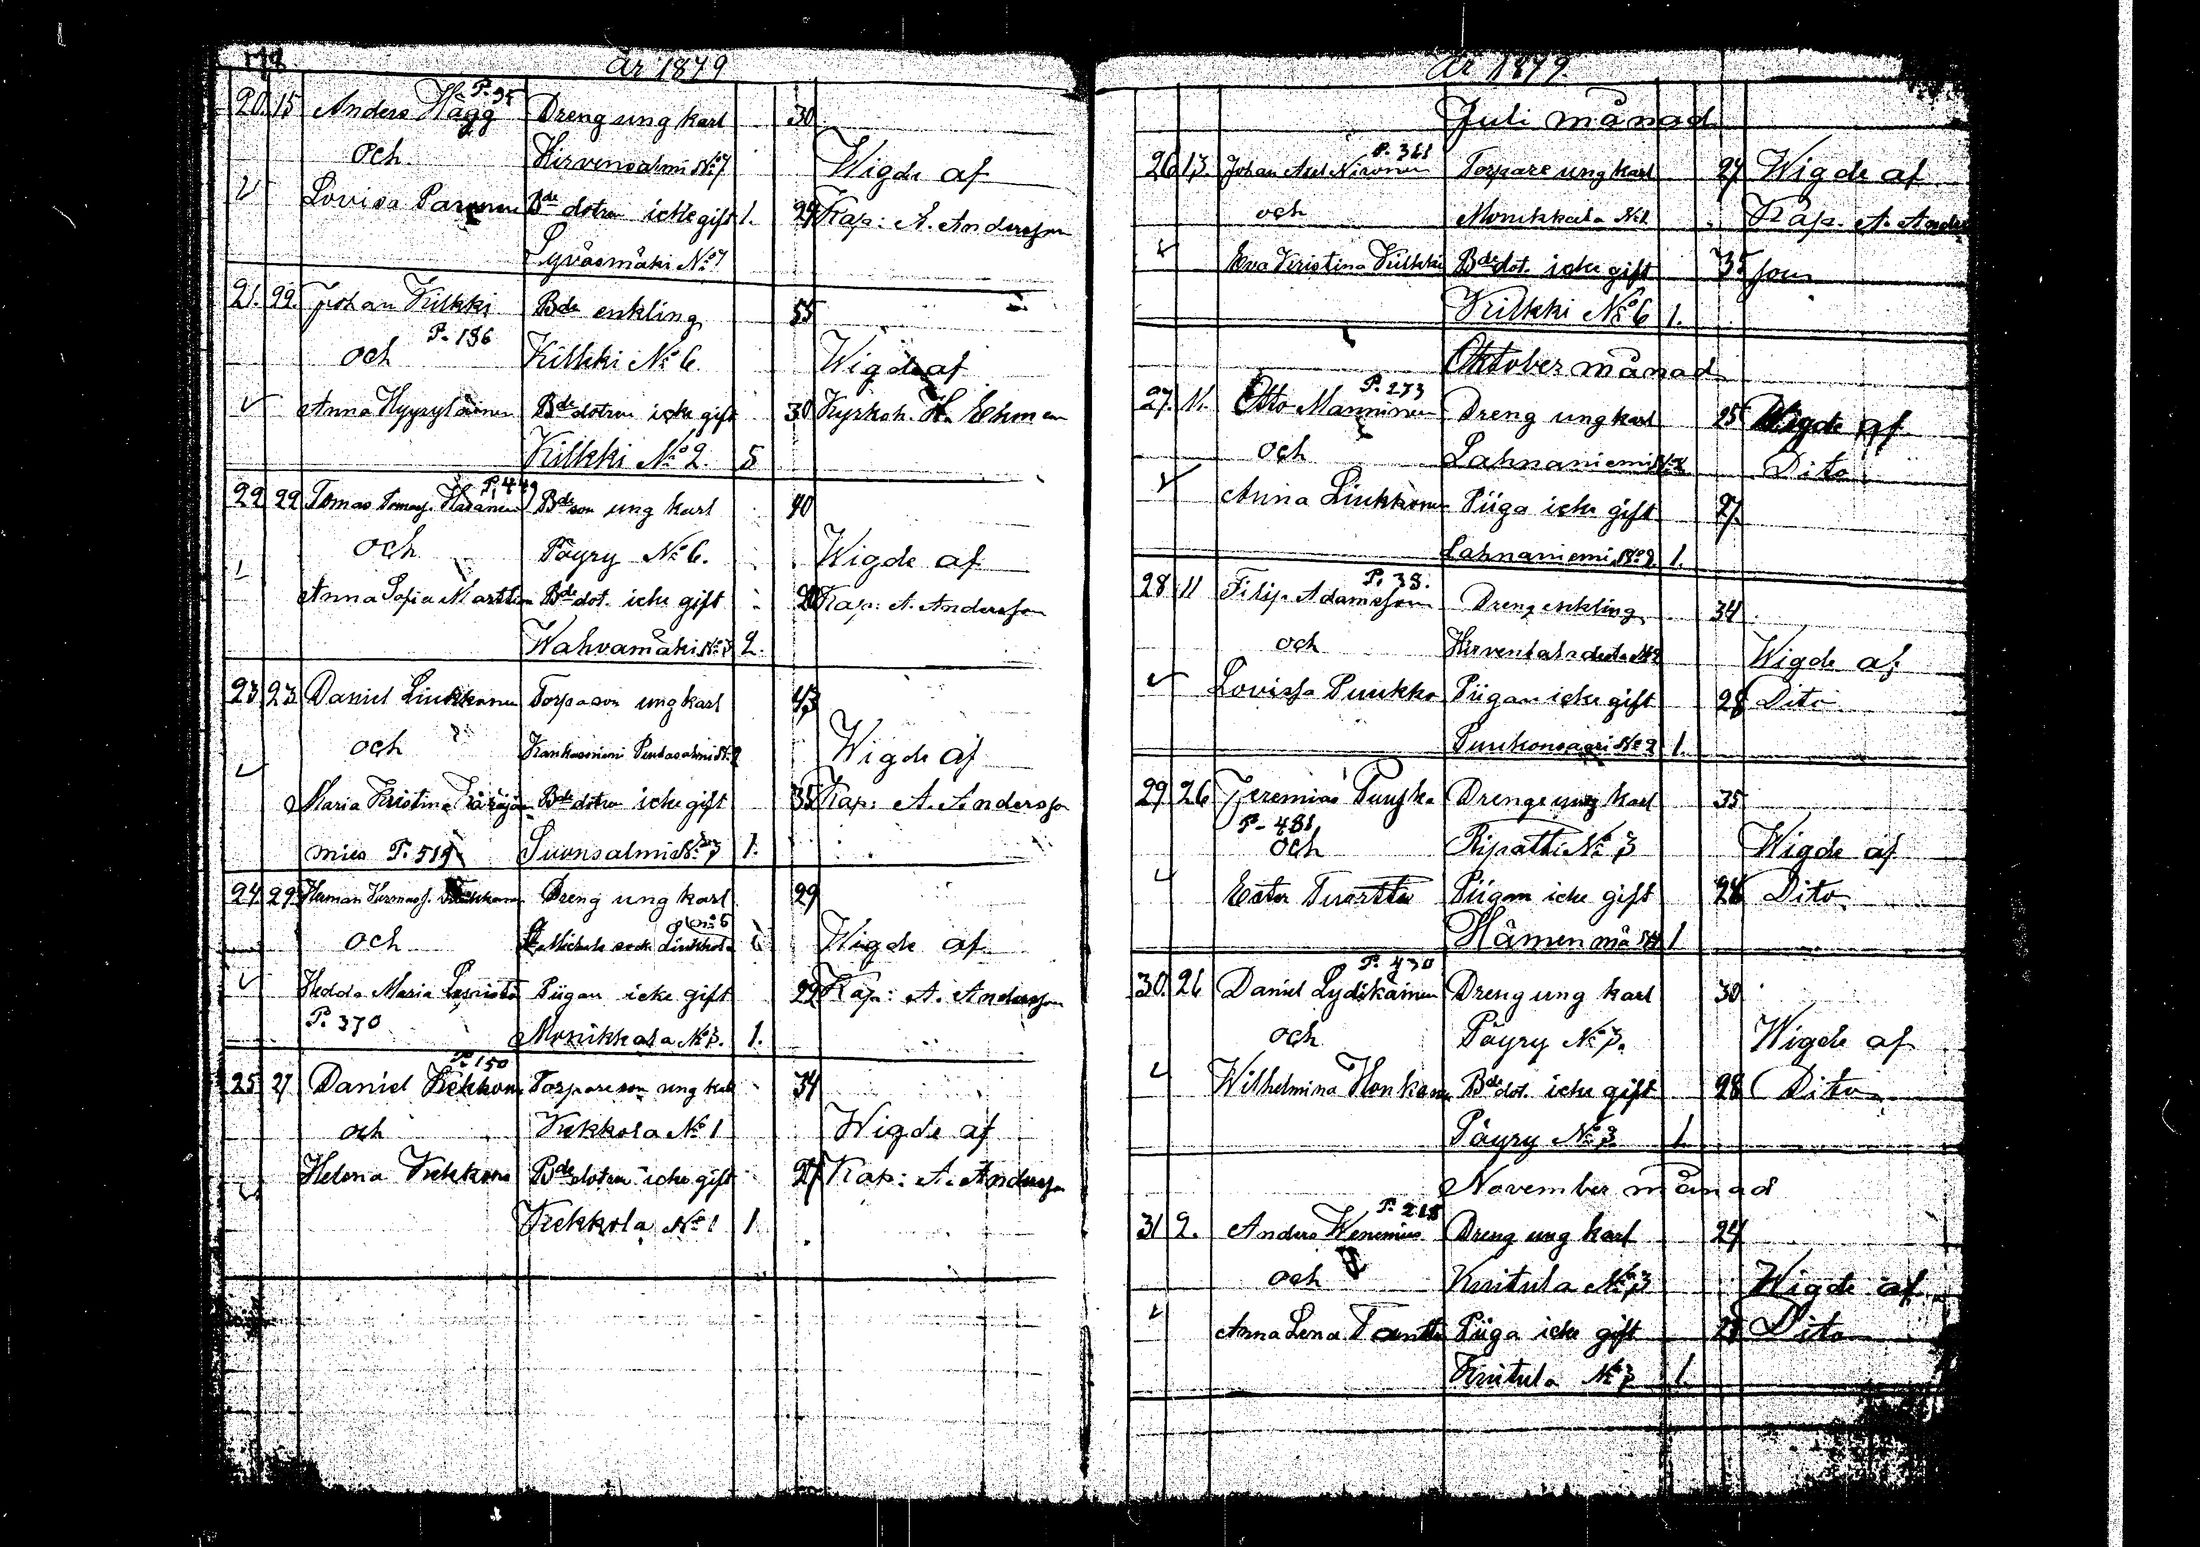 År 1879
P. 95
20. 15 Anders Hägg Dreng ung karl 30
och Hirvensalmi No 7 Wigde af
Lovisa Parvinen Bde dotren icke gift 1. 29 Kap: A. Andersson
Syväsmäki No 7
21. 22. Johan Kilkki Bde enkling 55
P. 136
och Kilkki No 6. Wigde af
Anna Hyyryläinen Bde dotren icke gift 30 Kyrkoh. H. Ehman
Kilkki No 2. 5
P. 449
22 22 Tomas Tomasf. Bde son ung karl 40
och Päyry No 6. Wigde af
Anna Sofia Bde dot. icke gift Kap: A. Andersson
Wahvamäki No 3 2.
23 23 Daniel Liukkonen Torpason ung karl 43
och Kankasniemi No 2 Wigde af
Maria Kristina Bde dotren icke gift 35 Kap: A. Andersson
mies P. 519 Suonsalmi No 3 1.
24 29 Herman Dreng ung karl 29
No 5
och St Michels sock Liukkola Wigde af
Hedda Maria Pigan icke gift 22 Kap: A. Andersson
P. 370 Monikkala No 3. 1.
P. 150
25 27 Daniel Kekkonen Torpare son ung karl 34
och Kekkola No 1 Wigde af
Helena Kekkonen Bde dotren icke gift 27 Kap: A. Andersson
Kekkola No 1 1
År 1879.
Juli månad
P. 361
26 13. Johan Axel Nironen Torpare ung karl 27 Wigde af
och Monikkala No 2 Kap. A. Anders
Eva Kristina Kilkki Bde dot. icke gift 35 son
Kilkki No 6 1.
Oktober månad
P. 273
27. 11. Otto Manninen Dreng ung karl 25 Wigde af
och Lahnaniemi No 2 Dito
Anna Liukkonen Piga icke gift 27
Lahnaniemi No 2 1.
P. 38.
28 11 Filip Adamsson Dreng enkling 34
och Wigde af
Lovissa Puukko Pigan icke gift 28 Dito
Puukonsaari No 2 1.
29 26 Jeremias Drenge ung karl 35
P. 481
och Ripatti No 3 Wigde af
Ester Pigan icke gift 28 Dito
1
P. 430
30. 26 Daniel Lydikäinen Dreng ung karl 30
och Päyry No 3. Wigde af
Wilhelmina Honkanen Bde dot. icke gift 28 Dito
Päyry No 3 1
November månad
P. 218
31 2. Anders Wenenius Dreng ung karl 24
och Kuitula No 3 Wigde af
Anna Lena Piga icke gift Dito
Kuitula No 3 1